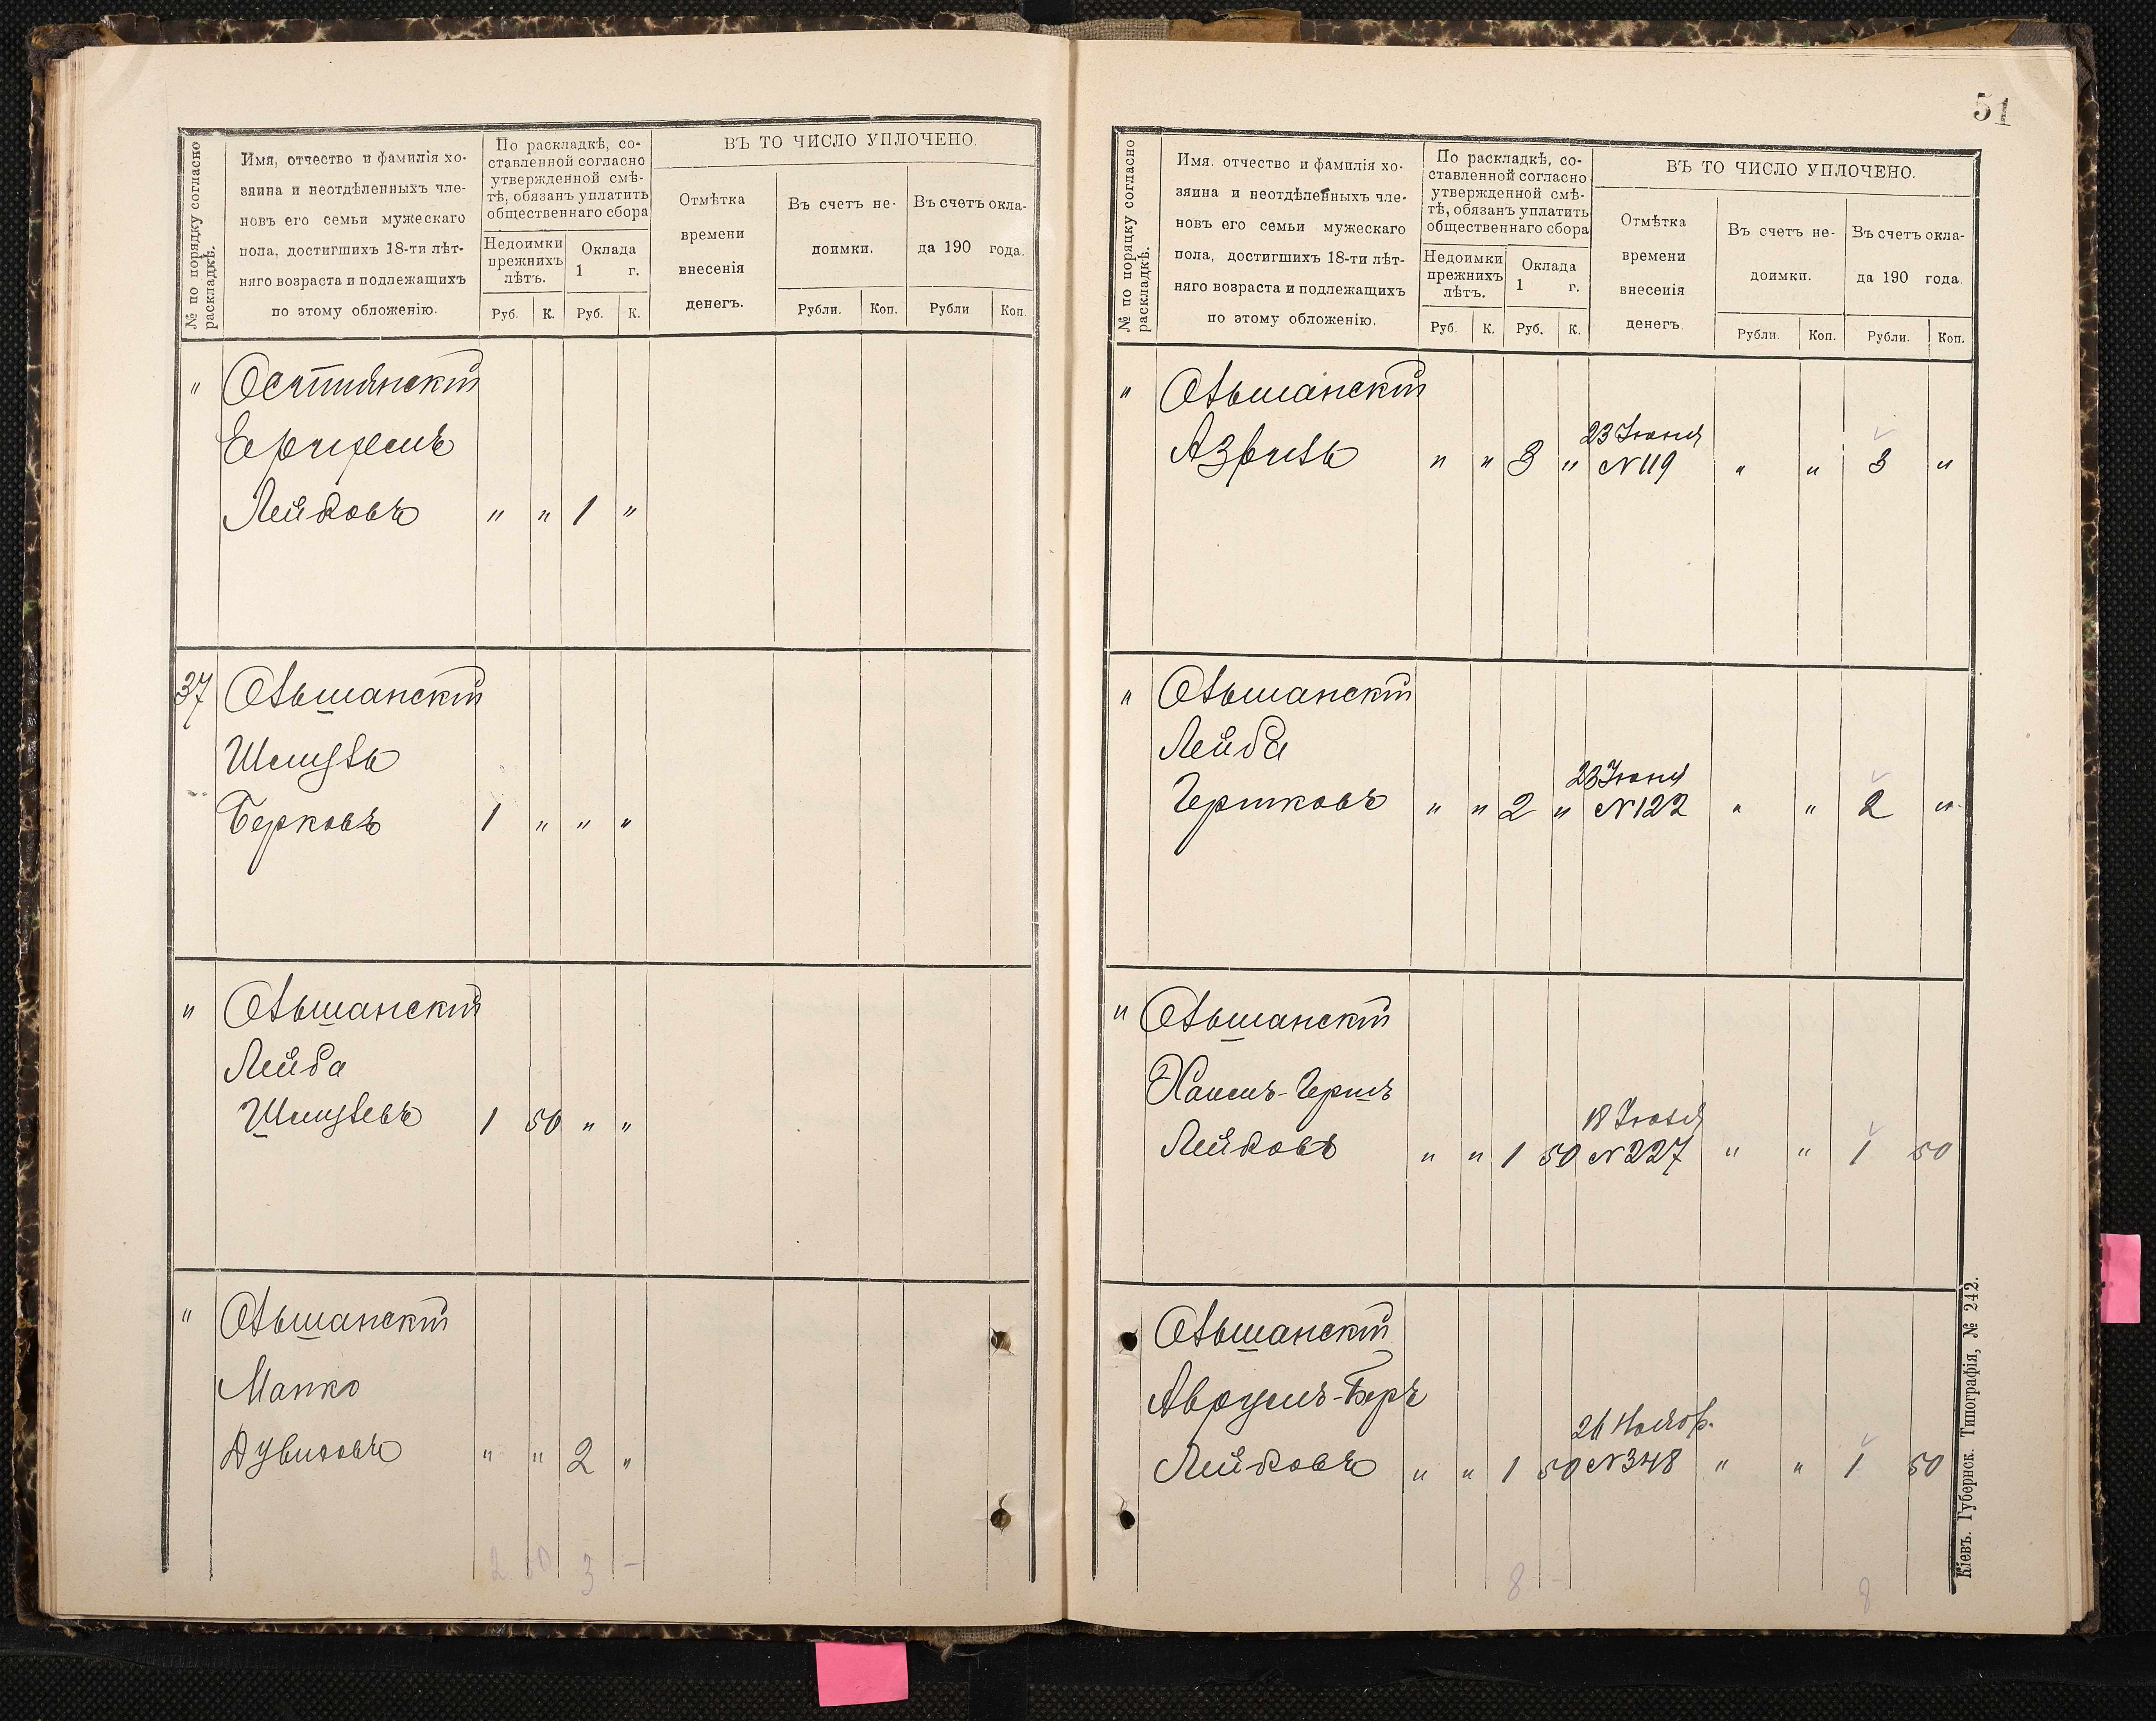 № по порядку согласно
раскладкѣ.
Имя, отчество и фамилія хо-
зяина и неотдѣленныхъ чле-
новъ его семьи мужескаго
пола, достигшихъ 18-ти лѣт-
няго возраста и подлежащихъ
по этому обложенію.
По раскладкѣ, со-
ставленной согласно
утвержденной смѣ-
тѣ, обязанъ уплатить
общественнаго сбора
Недоимки
прежнихъ
лѣтъ.
Оклада
1 г.
Руб. К. Руб. К.
ВЪ ТО ЧИСЛО УПЛОЧЕНО.
Отмѣтка
времени
внесенія
денегъ.
Въ счетъ не-
доимки.
Въ счетъ окла-
да 190 года.
Рубли. Коп. Рубли Коп.
"
Лейбовъ " " 1 "
37 Ольшанскій
Шмуль
Берковъ 1 " " "
" Ольшанскій
Лейба
Шмулевъ 1 50 " "
" Ольшанскій
Манко
Дувидовъ " " 2 "
2 50 3 -
51
№ по порядку согласно
раскладкѣ.
Имя. отчество и фамилія хо-
зяина и неотдѣленныхъ чле-
новъ его семьи мужескаго
пола, достигшихъ 18-ти лѣт-
няго возраста и подлежащихъ
по этому обложенію.
По раскладкѣ, со-
ставленной согласно
утвержденной смѣ-
тѣ, обязанъ уплатить
общественнаго сбора
Недоимки
прежнихъ
лѣтъ.
Оклада
1 г.
Руб. К. Руб. К.
ВЪ ТО ЧИСЛО УПЛОЧЕНО.
Отмѣтка
времени
внесенія
денегъ.
Въ счетъ не-
доимки.
Въ счетъ окла-
да 190 года.
Рубли. Коп. Рубли. Коп.
" Ольшанскій
23 Іюня
Азриль " " 3 " №119 " " 3 "
" Ольшанскій
Лейба
23 Іюня
Гершковъ " " 2 " №122 " " 2 "
" Ольшанскій
Хаимъ-Гершъ
18 Іюля
Лейбовъ " " 1 50 №227 " " 1 50
Ольшанскій
Аврумъ-Беръ
26 Нояб.
Лейбовъ " " 1 50 №348 " " 1 50
8 - 8
Кіевъ. Губернск. Типографія, № 242.